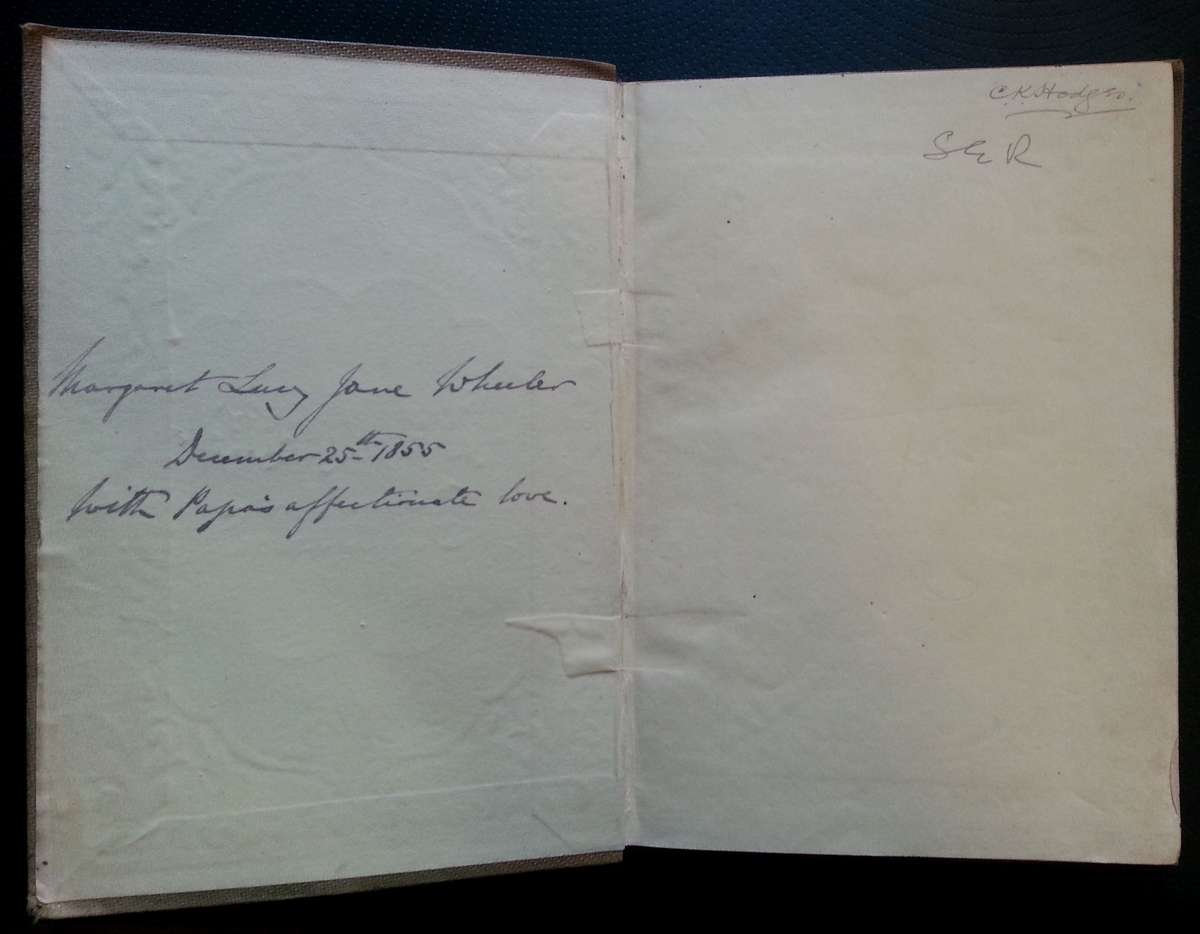 Margaret Lucy Jane Wheeler
December 25th 1855
With Papa's affectionate love.
C. K.
S E R